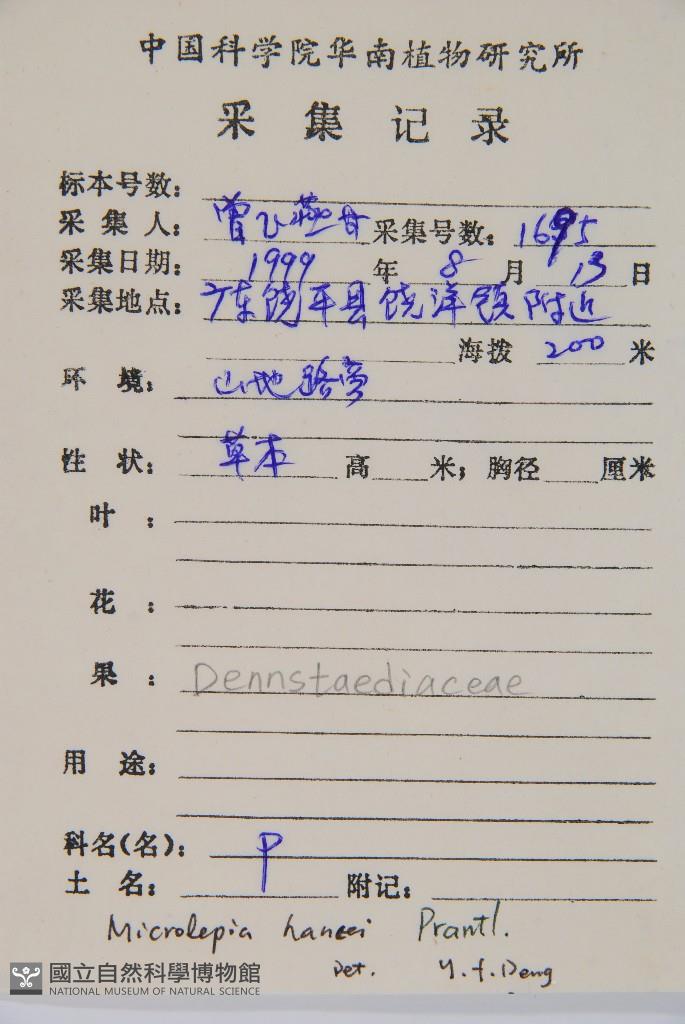 中国科学院华南植物研究所
采集记录
标本号数:
采集人: 曾飞燕 采集号数: 1695
采集日期: 1999 年 8 月 13 日
采集地点: 广东饶平县饶洋镇附近
海拨 200 米
环境: 山地路旁
性状: 草本 高 米; 胸径 厘米
叶:
花:
果: Dennstaediaceae
用途:
科名(名): P
土名: 附记:
Microlepia hancei Prantl.
Det. Y. f. Deng
國立自然科學博物館
NATIONAL MUSEUM OF NATURAL SCIENCE